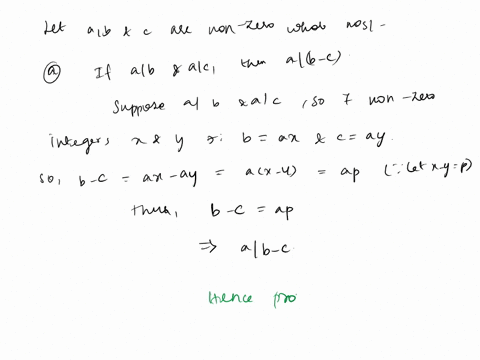 Let a,b & c are non-zero whole nos/-
(a) If a/b & a/c, then a/(b-c)
Suppose a/b & a/c, so ∃ non-zero
integers x & y s: b = ax & c = ay.
so, b-c = ax-ay = a(x-y) = ap (∵ let x-y=p)
thus, b-c = ap
⇒ a/b-c
Hence pro